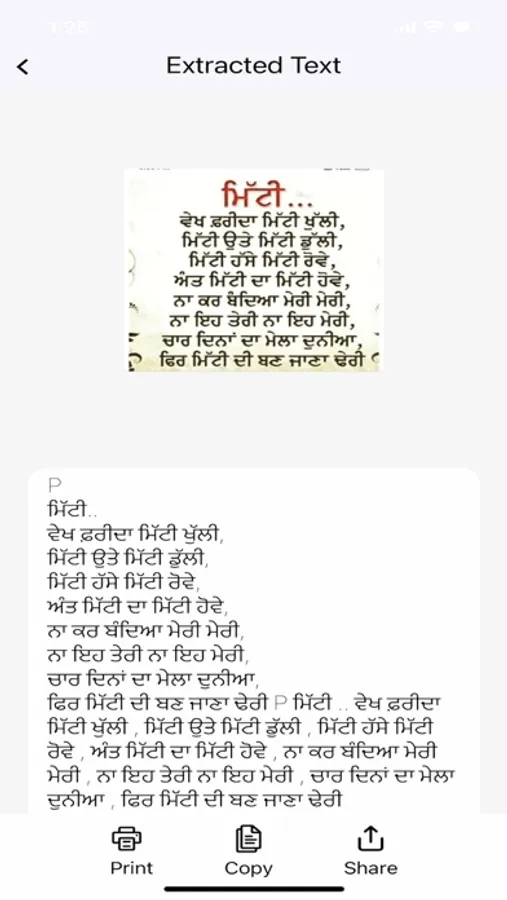 1:25
Extracted Text
ਮਿੱਟੀ...
ਵੇਖ ਫ਼ਰੀਦਾ ਮਿੱਟੀ ਖੁੱਲੀ,
ਮਿੱਟੀ ਉਤੇ ਮਿੱਟੀ ਡੁੱਲੀ,
ਮਿੱਟੀ ਹੱਸੇ ਮਿੱਟੀ ਰੋਵੇ,
ਅੰਤ ਮਿੱਟੀ ਦਾ ਮਿੱਟੀ ਹੋਵੇ,
ਨਾ ਕਰ ਬੰਦਿਆ ਮੇਰੀ ਮੇਰੀ,
ਨਾ ਇਹ ਤੇਰੀ ਨਾ ਇਹ ਮੇਰੀ,
ਚਾਰ ਦਿਨਾਂ ਦਾ ਮੇਲਾ ਦੁਨੀਆ,
ਫਿਰ ਮਿੱਟੀ ਦੀ ਬਣ ਜਾਣਾ ਢੇਰੀ
P
ਮਿੱਟੀ..
ਵੇਖ ਫ਼ਰੀਦਾ ਮਿੱਟੀ ਖੁੱਲੀ,
ਮਿੱਟੀ ਉਤੇ ਮਿੱਟੀ ਡੁੱਲੀ,
ਮਿੱਟੀ ਹੱਸੇ ਮਿੱਟੀ ਰੋਵੇ,
ਅੰਤ ਮਿੱਟੀ ਦਾ ਮਿੱਟੀ ਹੋਵੇ,
ਨਾ ਕਰ ਬੰਦਿਆ ਮੇਰੀ ਮੇਰੀ,
ਨਾ ਇਹ ਤੇਰੀ ਨਾ ਇਹ ਮੇਰੀ,
ਚਾਰ ਦਿਨਾਂ ਦਾ ਮੇਲਾ ਦੁਨੀਆ,
ਫਿਰ ਮਿੱਟੀ ਦੀ ਬਣ ਜਾਣਾ ਢੇਰੀ P ਮਿੱਟੀ .. ਵੇਖ ਫ਼ਰੀਦਾ
ਮਿੱਟੀ ਖੁੱਲੀ , ਮਿੱਟੀ ਉਤੇ ਮਿੱਟੀ ਡੁੱਲੀ , ਮਿੱਟੀ ਹੱਸੇ ਮਿੱਟੀ
ਰੋਵੇ , ਅੰਤ ਮਿੱਟੀ ਦਾ ਮਿੱਟੀ ਹੋਵੇ , ਨਾ ਕਰ ਬੰਦਿਆ ਮੇਰੀ
ਮੇਰੀ , ਨਾ ਇਹ ਤੇਰੀ ਨਾ ਇਹ ਮੇਰੀ , ਚਾਰ ਦਿਨਾਂ ਦਾ ਮੇਲਾ
ਦੁਨੀਆ , ਫਿਰ ਮਿੱਟੀ ਦੀ ਬਣ ਜਾਣਾ ਢੇਰੀ
Print Copy Share